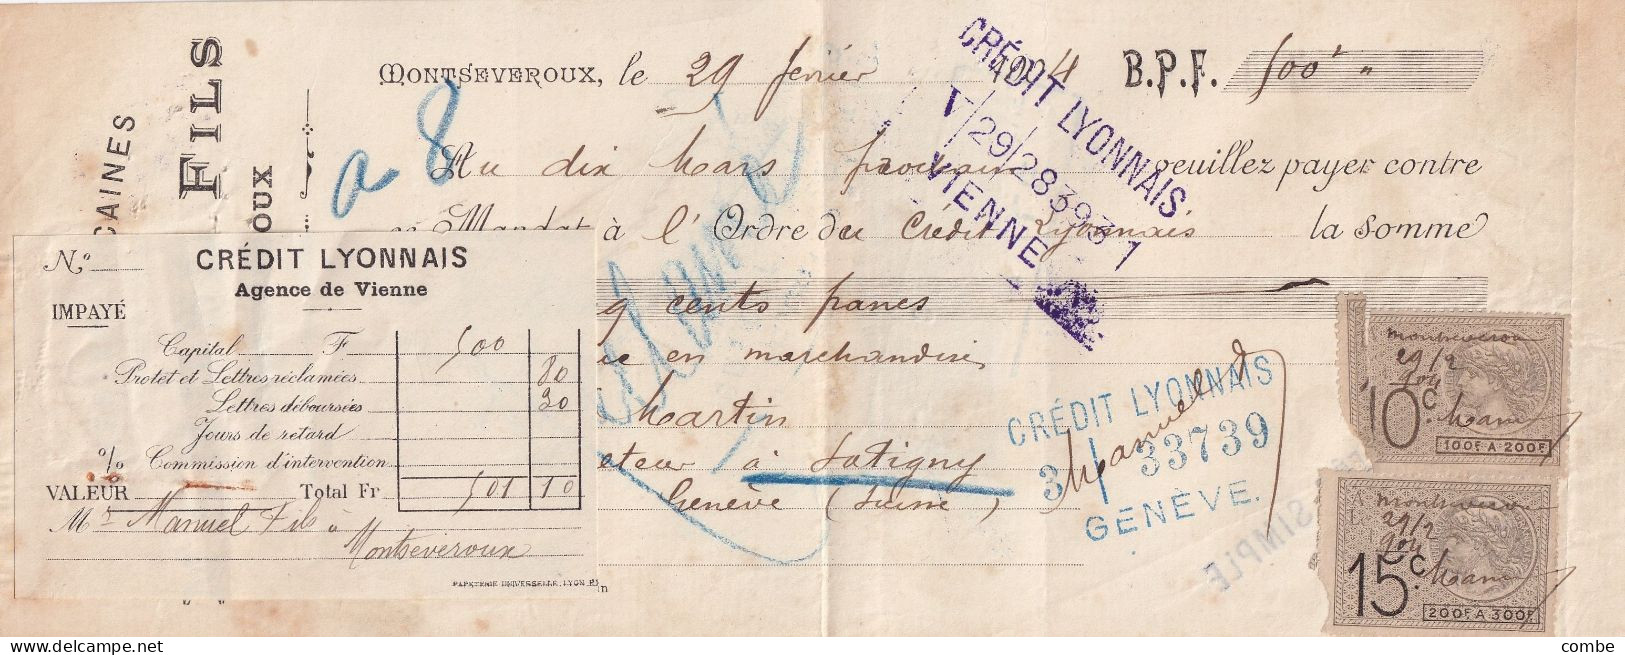 CAINES
FILS
OUX
MONTSEVEROUX, le 29 fevrier 1904 B.P.F. 500 "
a 8
Au dix Mars prochain veuillez payer contre
ce Mandat à l'Ordre du Crédit Lyonnais la somme
q cents francs
en marchandises
Martin
à Satigny
Genève (Suisse)
CRÉDIT LYONNAIS
V/29/283931
VIENNE
CRÉDIT LYONNAIS
3 33739
GENÈVE.
Manuel
SIMPLE
No.
CRÉDIT LYONNAIS
Agence de Vienne
IMPAYÉ
Capital F 500
Protêt et Lettres réclamées 80
Lettres déboursées 30
Jours de retard
% Commission d'intervention
VALEUR Total Fr 501 10
Mr Manuel Fils à
Montseveroux
PAPETERIE UNIVERSELLE, LYON
Montseveroux
29/2
904
10c
100F A 200F
Montseveroux
29/2
904
15c
200F A 300F
combe